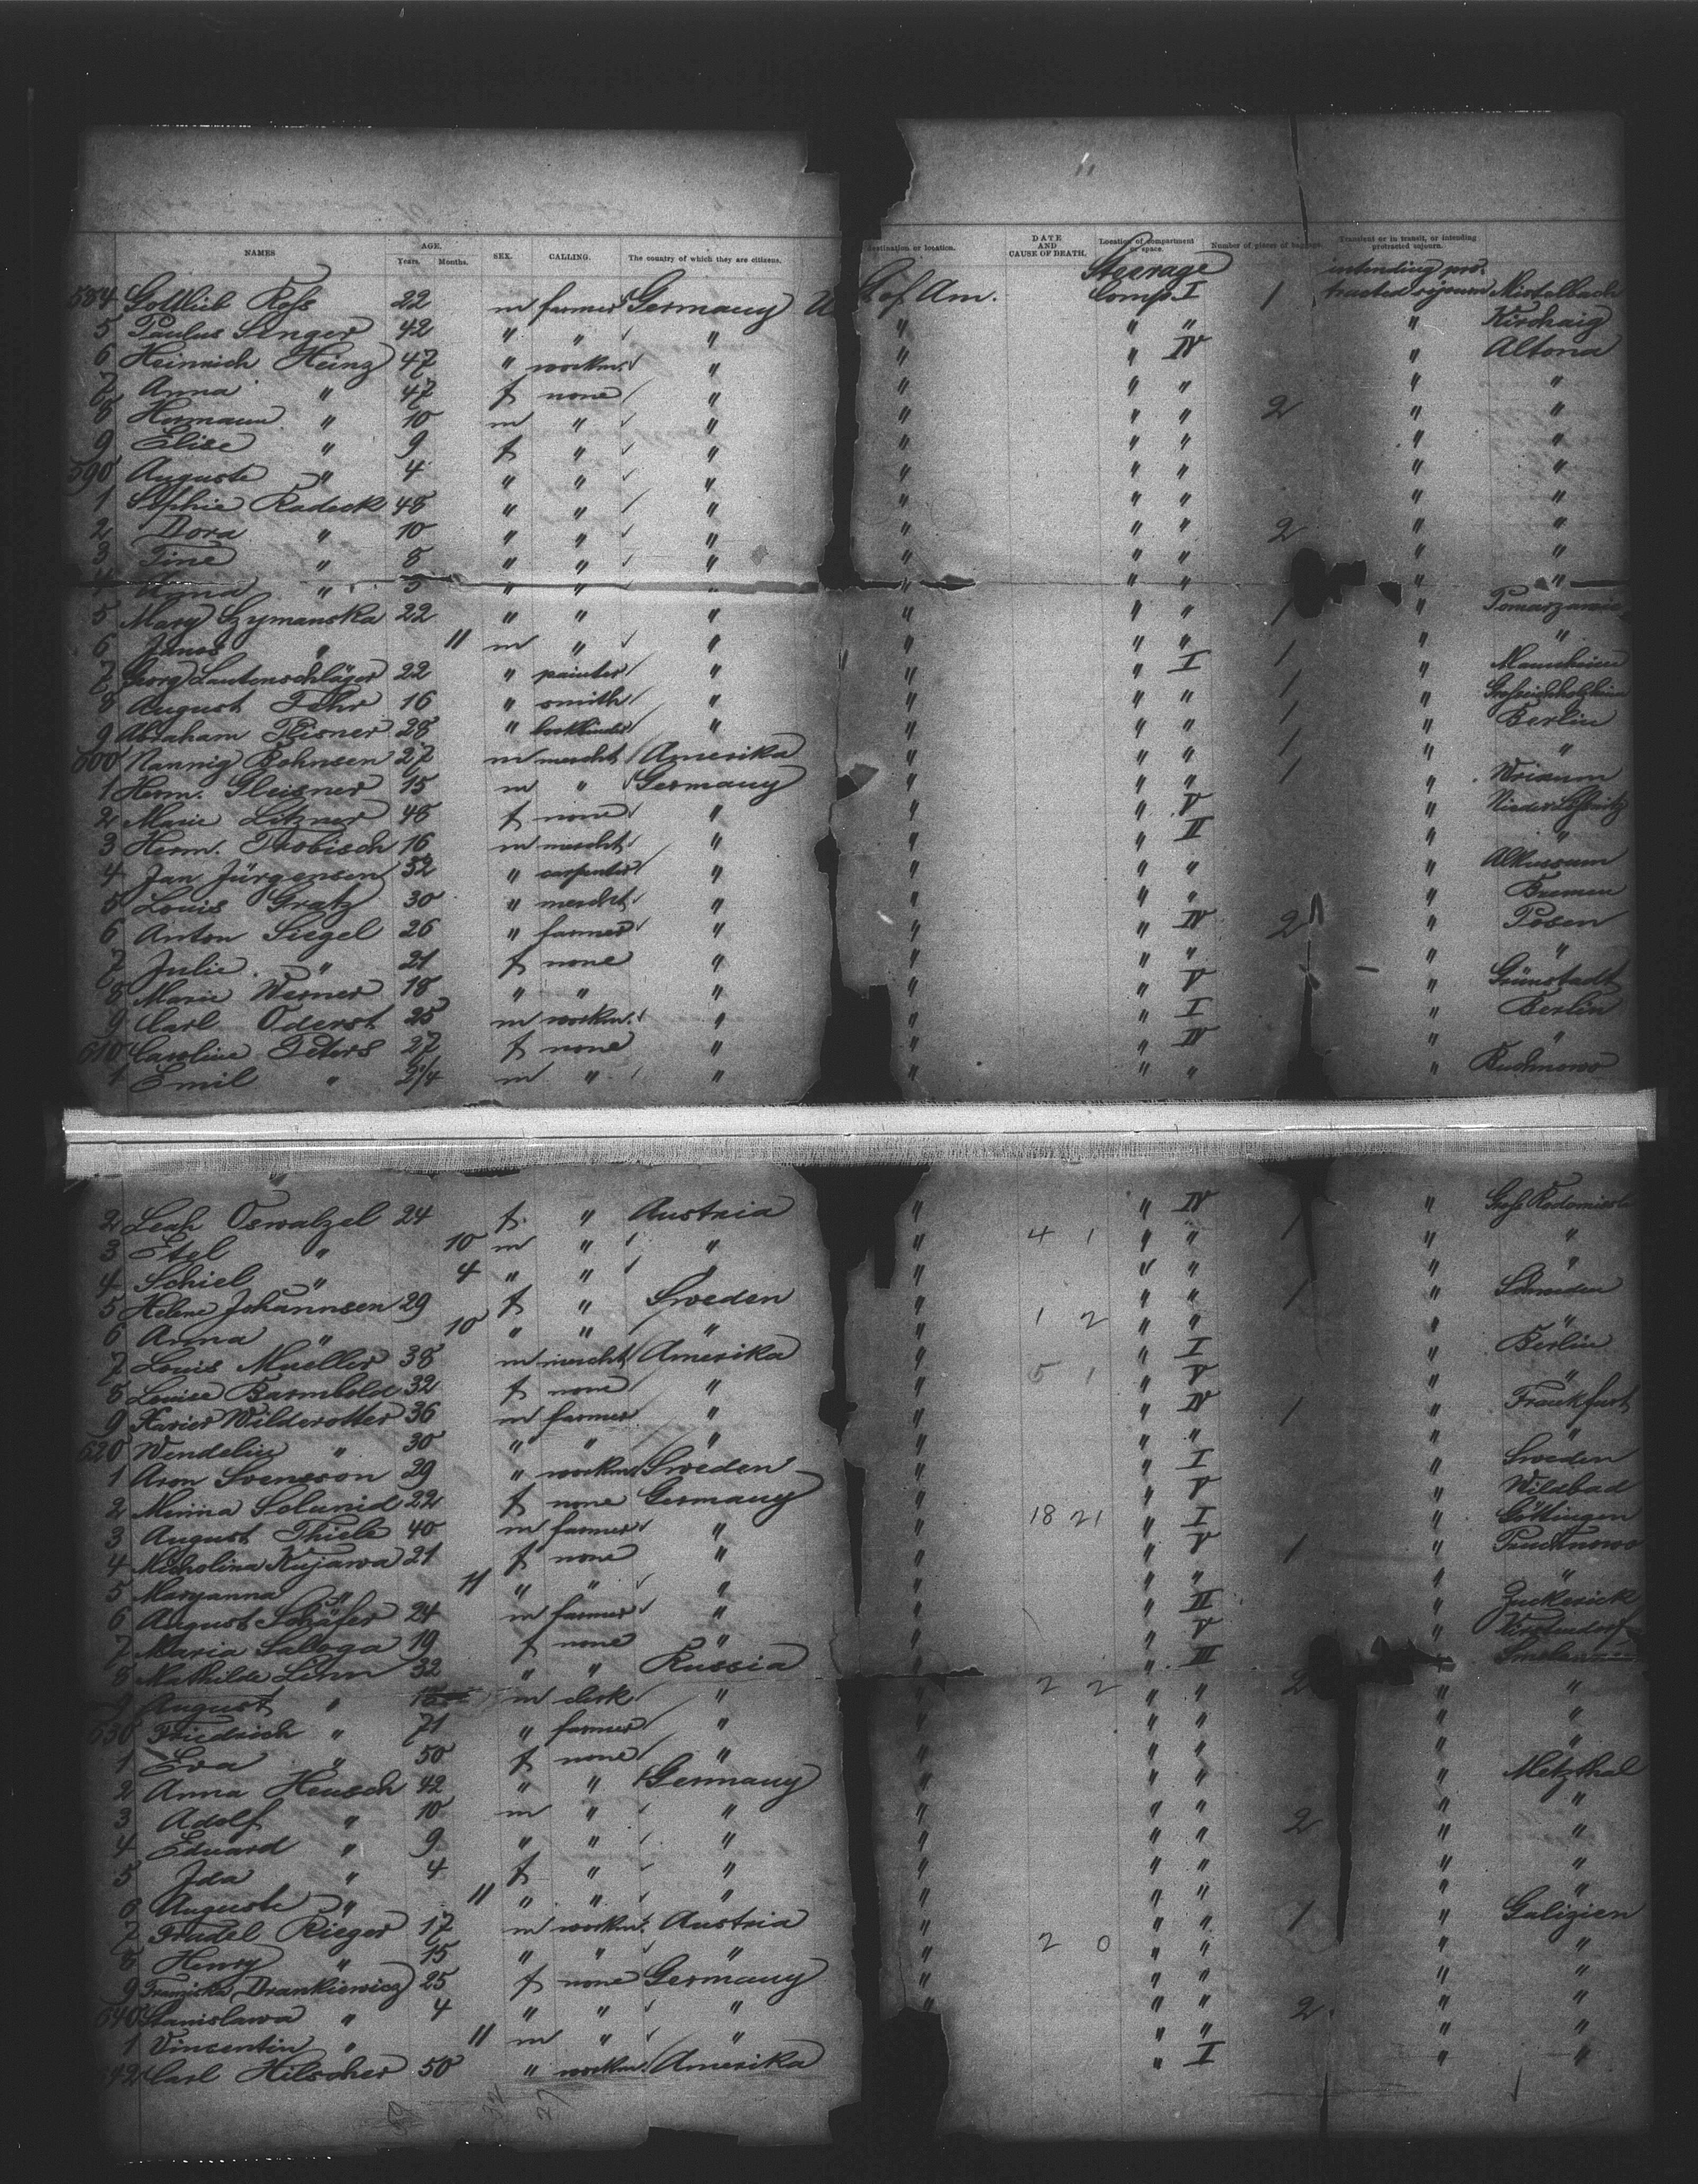 NAMES AGE. Years. Months. SEX. CALLING. The country of which they are citizens. destination or location. DATE AND CAUSE OF DEATH. Location of compartment or space. Number of pieces of baggage Transient or in transit, or intending protracted sojourn.
Steerage intending pro-
584 Gottlieb Roſs 22 m farmer Germany U S of Am. Comp. I 1 tracted sojourn Mistelbach
5 Paulus Senger 42 " " " " " " " Kirchaig
6 Heinrich Heinz 47 " workm. " " " IV " Altona
7 Anna " 47 f none " " " " " "
8 Hermann " 10 m " " " " " 2 " "
9 Elise " 9 f " " " " " " "
590 Auguste " 4 " " " " " " " "
1 Sophie Radeck 48 " " " " " " " "
2 Dora " 10 " " " " " " 2 " "
3 Tine " 8 " " " " " " " "
4 Anna " 5 " " " " " " " "
5 Mary Szymanska 22 " " " " " " 1 "
6 " 11 m " " " " " 1 " "
7 Georg Lautenschläger 22 " painter " " " I 1 " Mannheim
8 August Fehr 16 " smith " " " " 1 "
9 Abraham Plisner 28 " " " " " 1 " Berlin
600 Nannig Bohnsen 27 m mercht Amerika " " " 1 " "
1 Herm. Gleisner 15 m " Germany " " " 1 " Wrixum
2 Marie Litzner 48 f none " " " V "
3 Herm. Throbisch 16 m mercht. " " " II " "
4 Jan Jürgensen 32 " carpenter " " " " " Alkussum
5 Louis Gratz 30 " mercht. " " " " " Bremen
6 Anton Siegel 26 " farmer " " " IV 2 " Posen
7 Julie " 21 f none " " " " " "
8 Marie Werner 18 " " " " " V " Grünstadt
9 Carl Oderst 25 m workm. " " " I " Berlin
610 Caroline Peters 27 f none " " " IV " "
1 Emil " 2 1/4 m " " " " " " Buchnowo
2 Leah Oswalzel 24 f " Austria " " IV 1 "
3 Etel " 10 m " " " 4 1 " " " "
4 Schiel " 4 " " " " " " " "
5 Helene Johannsen 29 f " Sweden " " " 1 " Schweden
6 Anna " 10 " " " " 1 2 " " " "
7 Louis Mueller 38 m mercht Amerika " " I " Berlin
8 Louise Barmbold 32 f none " " 5 1 " V " "
9 Xavier Wilderotter 36 m farmer " " " IV 1 " Frankfurt
620 Wendelin " 30 " " " " " " " "
1 Aron Svensson 29 " workm Sweden " " I " Sweden
2 Minna Schmid 22 f none Germany " " V " Wildbad
3 August Thiele 40 m farmer " " 18 21 " I " Göttingen
4 Micholina Kujawa 21 f none " " " V 1 "
5 Maryanna " 11 " " " " " " " "
6 August Schäfer 24 m farmer " " " II " Zuckerick
7 Maria Salloga 19 f none " " " V "
8 Mathilde Linn 32 " " Russia " " III "
9 August " 15 m clerk " " 2 2 " " 2 " "
630 Friedrich " 71 " farmer " " " " " "
1 Eva " 50 f none " " " " " "
2 Anna Heusch 42 " " Germany " " " " Metzthal
3 Adolf " 10 m " " " " " 2 " "
4 Eduard " 9 " " " " " " " "
5 Ida " 4 f " " " " " " "
6 Auguste " 11 " " " " " " " "
7 Frudel Rieger 17 m workm. Austria " " " 1 " Galizien
8 Henry " 15 " " " " 2 0 " " " "
9 Franziska Drankiewicz 25 f none Germany " " " " "
640 Stanislawa " 4 " " " " " " 2 " "
1 Vincentin " 11 m " " " " " "
642 Carl Hilscher 50 " workm. Amerika " I " "